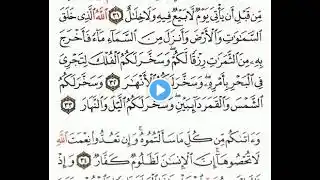 مِّن قَبْلِ أَن يَأْتِيَ يَوْمٌ لَّا بَيْعٌ فِيهِ وَلَا خِلَٰلٌ ٣١ ٱللَّهُ ٱلَّذِى خَلَقَ
ٱلسَّمَٰوَٰتِ وَٱلْأَرْضَ وَأَنزَلَ مِنَ ٱلسَّمَآءِ مَآءً فَأَخْرَجَ
بِهِۦ مِنَ ٱلثَّمَرَٰتِ رِزْقًا لَّكُمْ وَسَخَّرَ لَكُمُ ٱلْفُلْكَ لِتَجْرِىَ
فِى ٱلْبَحْرِ بِأَمْرِهِۦ وَسَخَّرَ لَكُمُ ٱلْأَنْهَٰرَ ٣٢ وَسَخَّرَ لَكُمُ
ٱلشَّمْسَ وَٱلْقَمَرَ دَآئِبَيْنِ وَسَخَّرَ لَكُمُ ٱلَّيْلَ وَٱلنَّهَارَ
٣٣
وَءَاتَىٰكُم مِّن كُلِّ مَا سَأَلْتُمُوهُ وَإِن تَعُدُّوا۟ نِعْمَتَ ٱللَّهِ
لَا تُحْصُوهَآ إِنَّ ٱلْإِنسَٰنَ لَظَلُومٌ كَفَّارٌ ٣٤ وَإِذْ